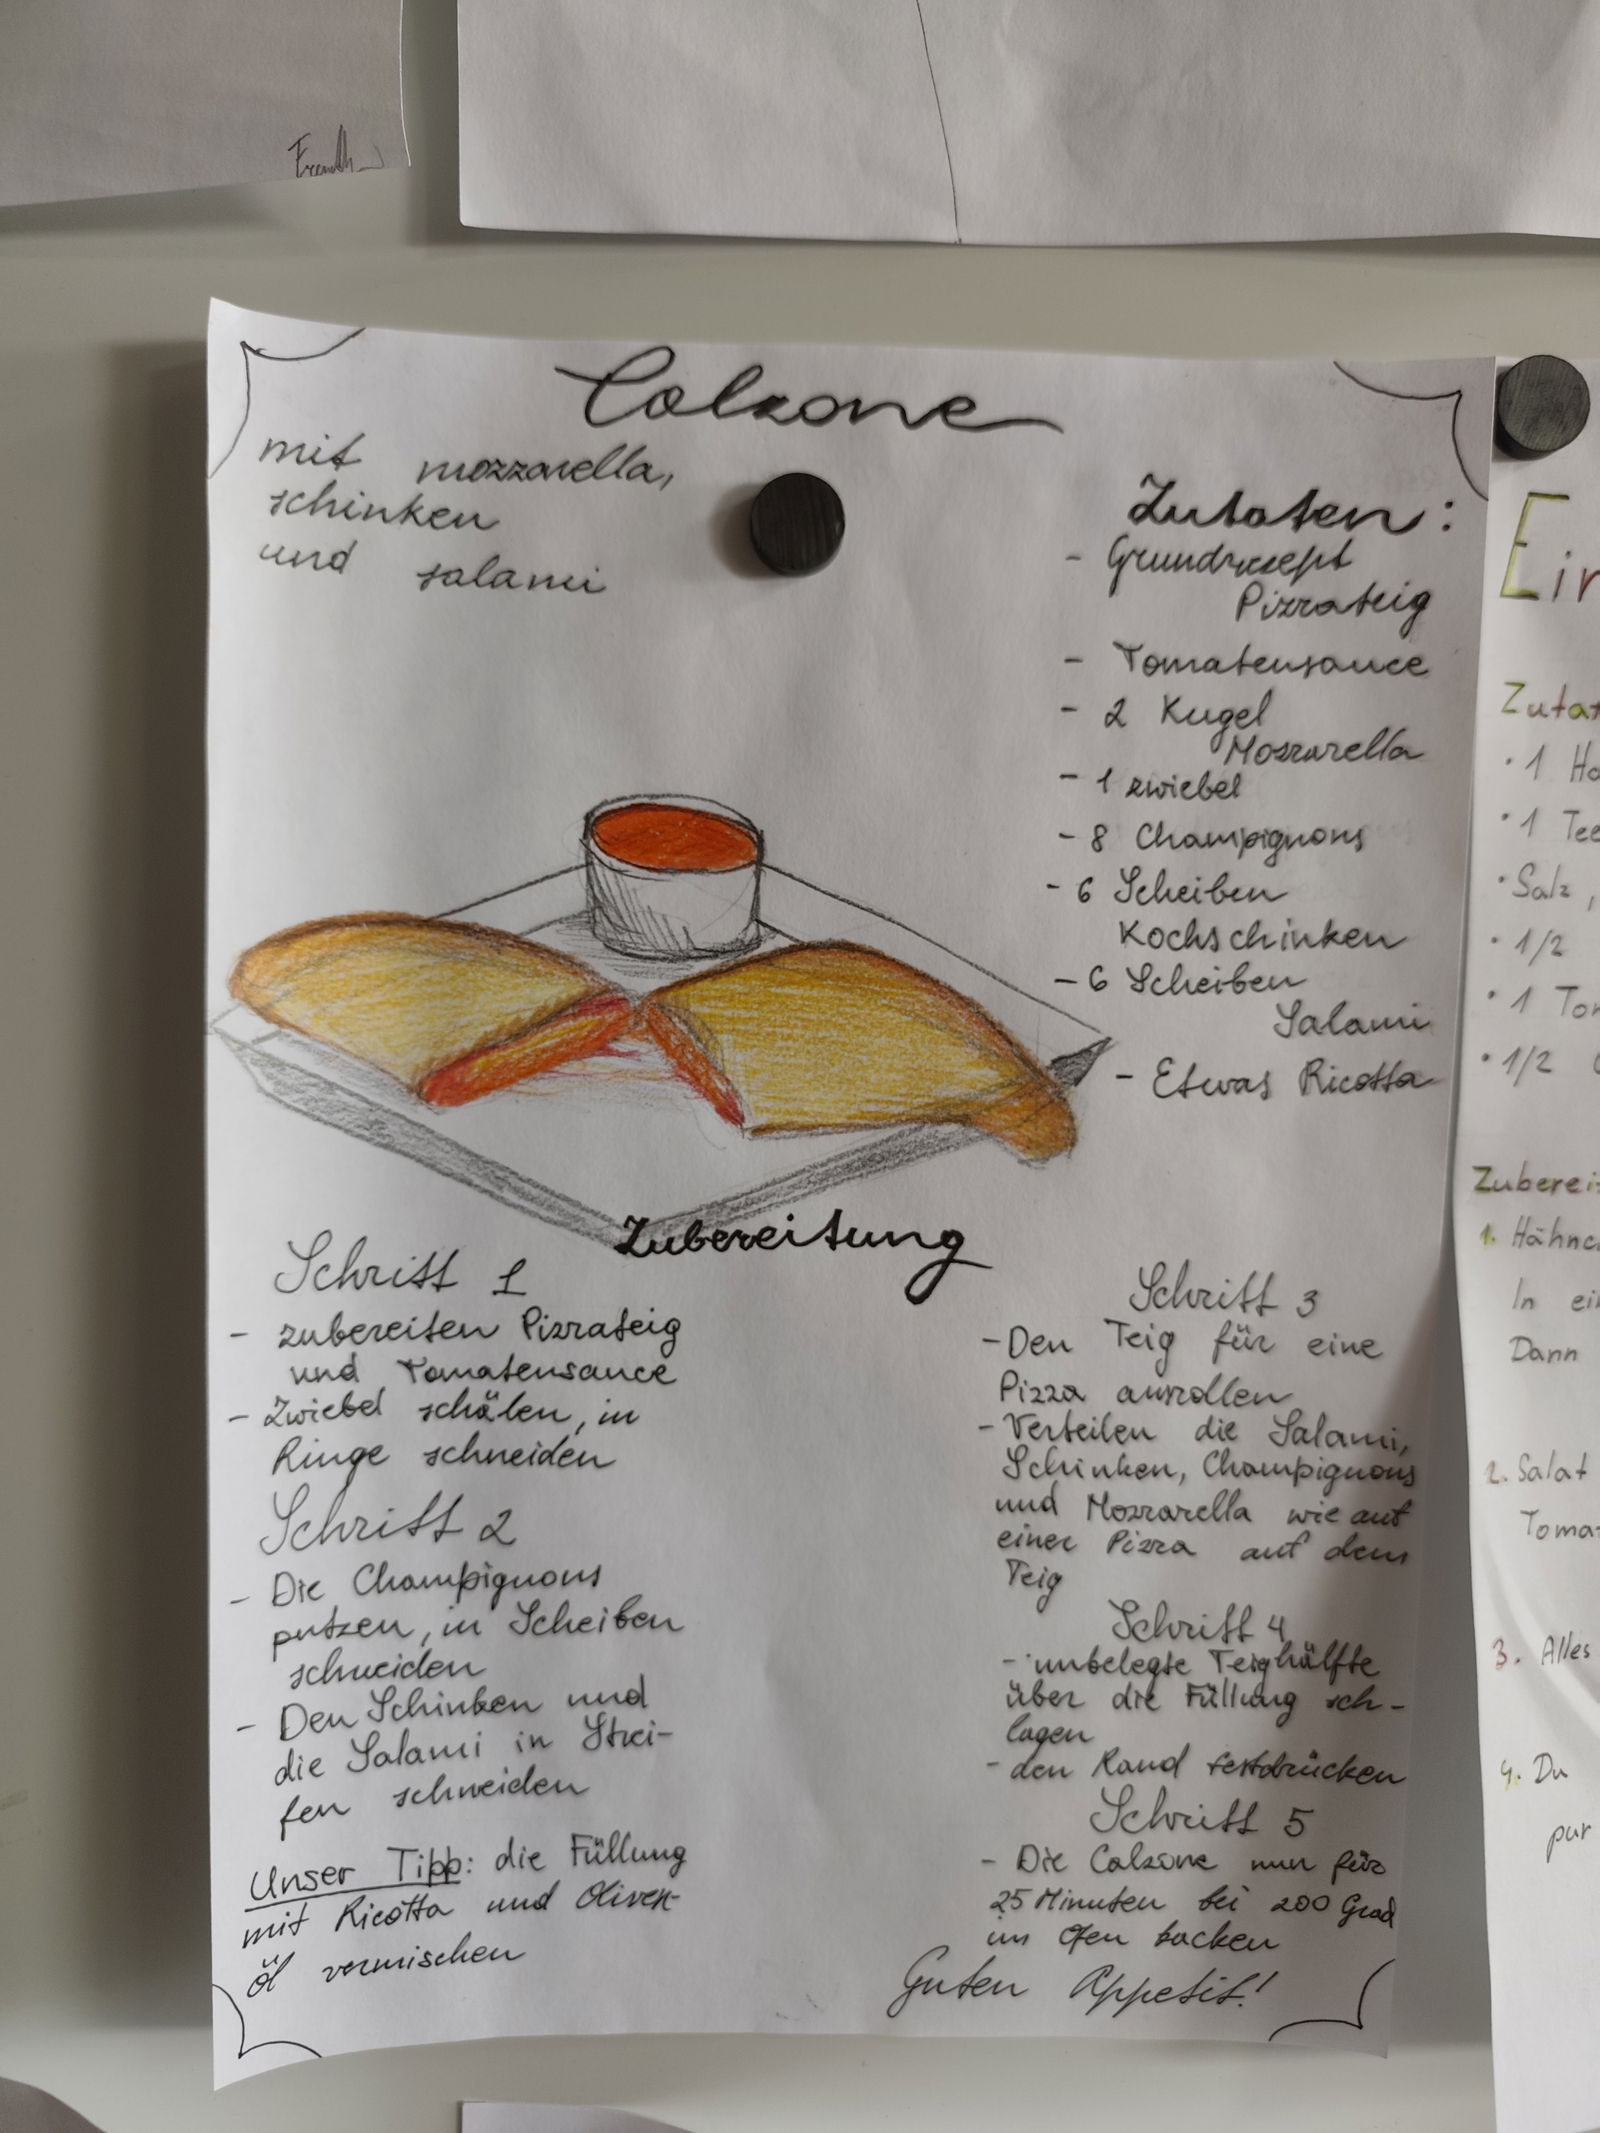 Calzone
mit mozzarella,
schinken
und salami
Zutaten:
- Grundrezept
Pizzateig
- Tomatensauce
- 2 Kugel
Mozzarella
- 1 zwiebel
- 8 Champignons
- 6 Scheiben
Kochschinken
- 6 Scheiben
Salami
- Etwas Ricotta
Zubereitung
Schritt 1
- zubereiten Pizzateig
und Tomatensauce
- Zwiebel schälen, in
Ringe schneiden
Schritt 2
- Die Champignons
putzen, in Scheiben
schneiden
- Den Schinken und
die Salami in Strei-
fen schneiden
Unser Tipp: die Füllung
mit Ricotta und Oliven-
öl vermischen
Schritt 3
- Den Teig für eine
Pizza ausrollen
- Verteilen die Salami,
Schinken, Champignons
und Mozzarella wie auf
einer Pizza auf dem
Teig
Schritt 4
- unbelegte Teighälfte
über die Füllung sch-
lagen
- den Rand festdrücken
Schritt 5
- Die Calzone nun für
25 Minuten bei 200 Grad
im Ofen backen
Guten Appetit!
Ein
Zutat
• 1 Ha
• 1 Tee
• Salz,
• 1/2
• 1 Tom
• 1/2
Zubereit
1. Hähnc
In ein
Dann
2. Salat
Tomat
3. Alles
4. Du
pur